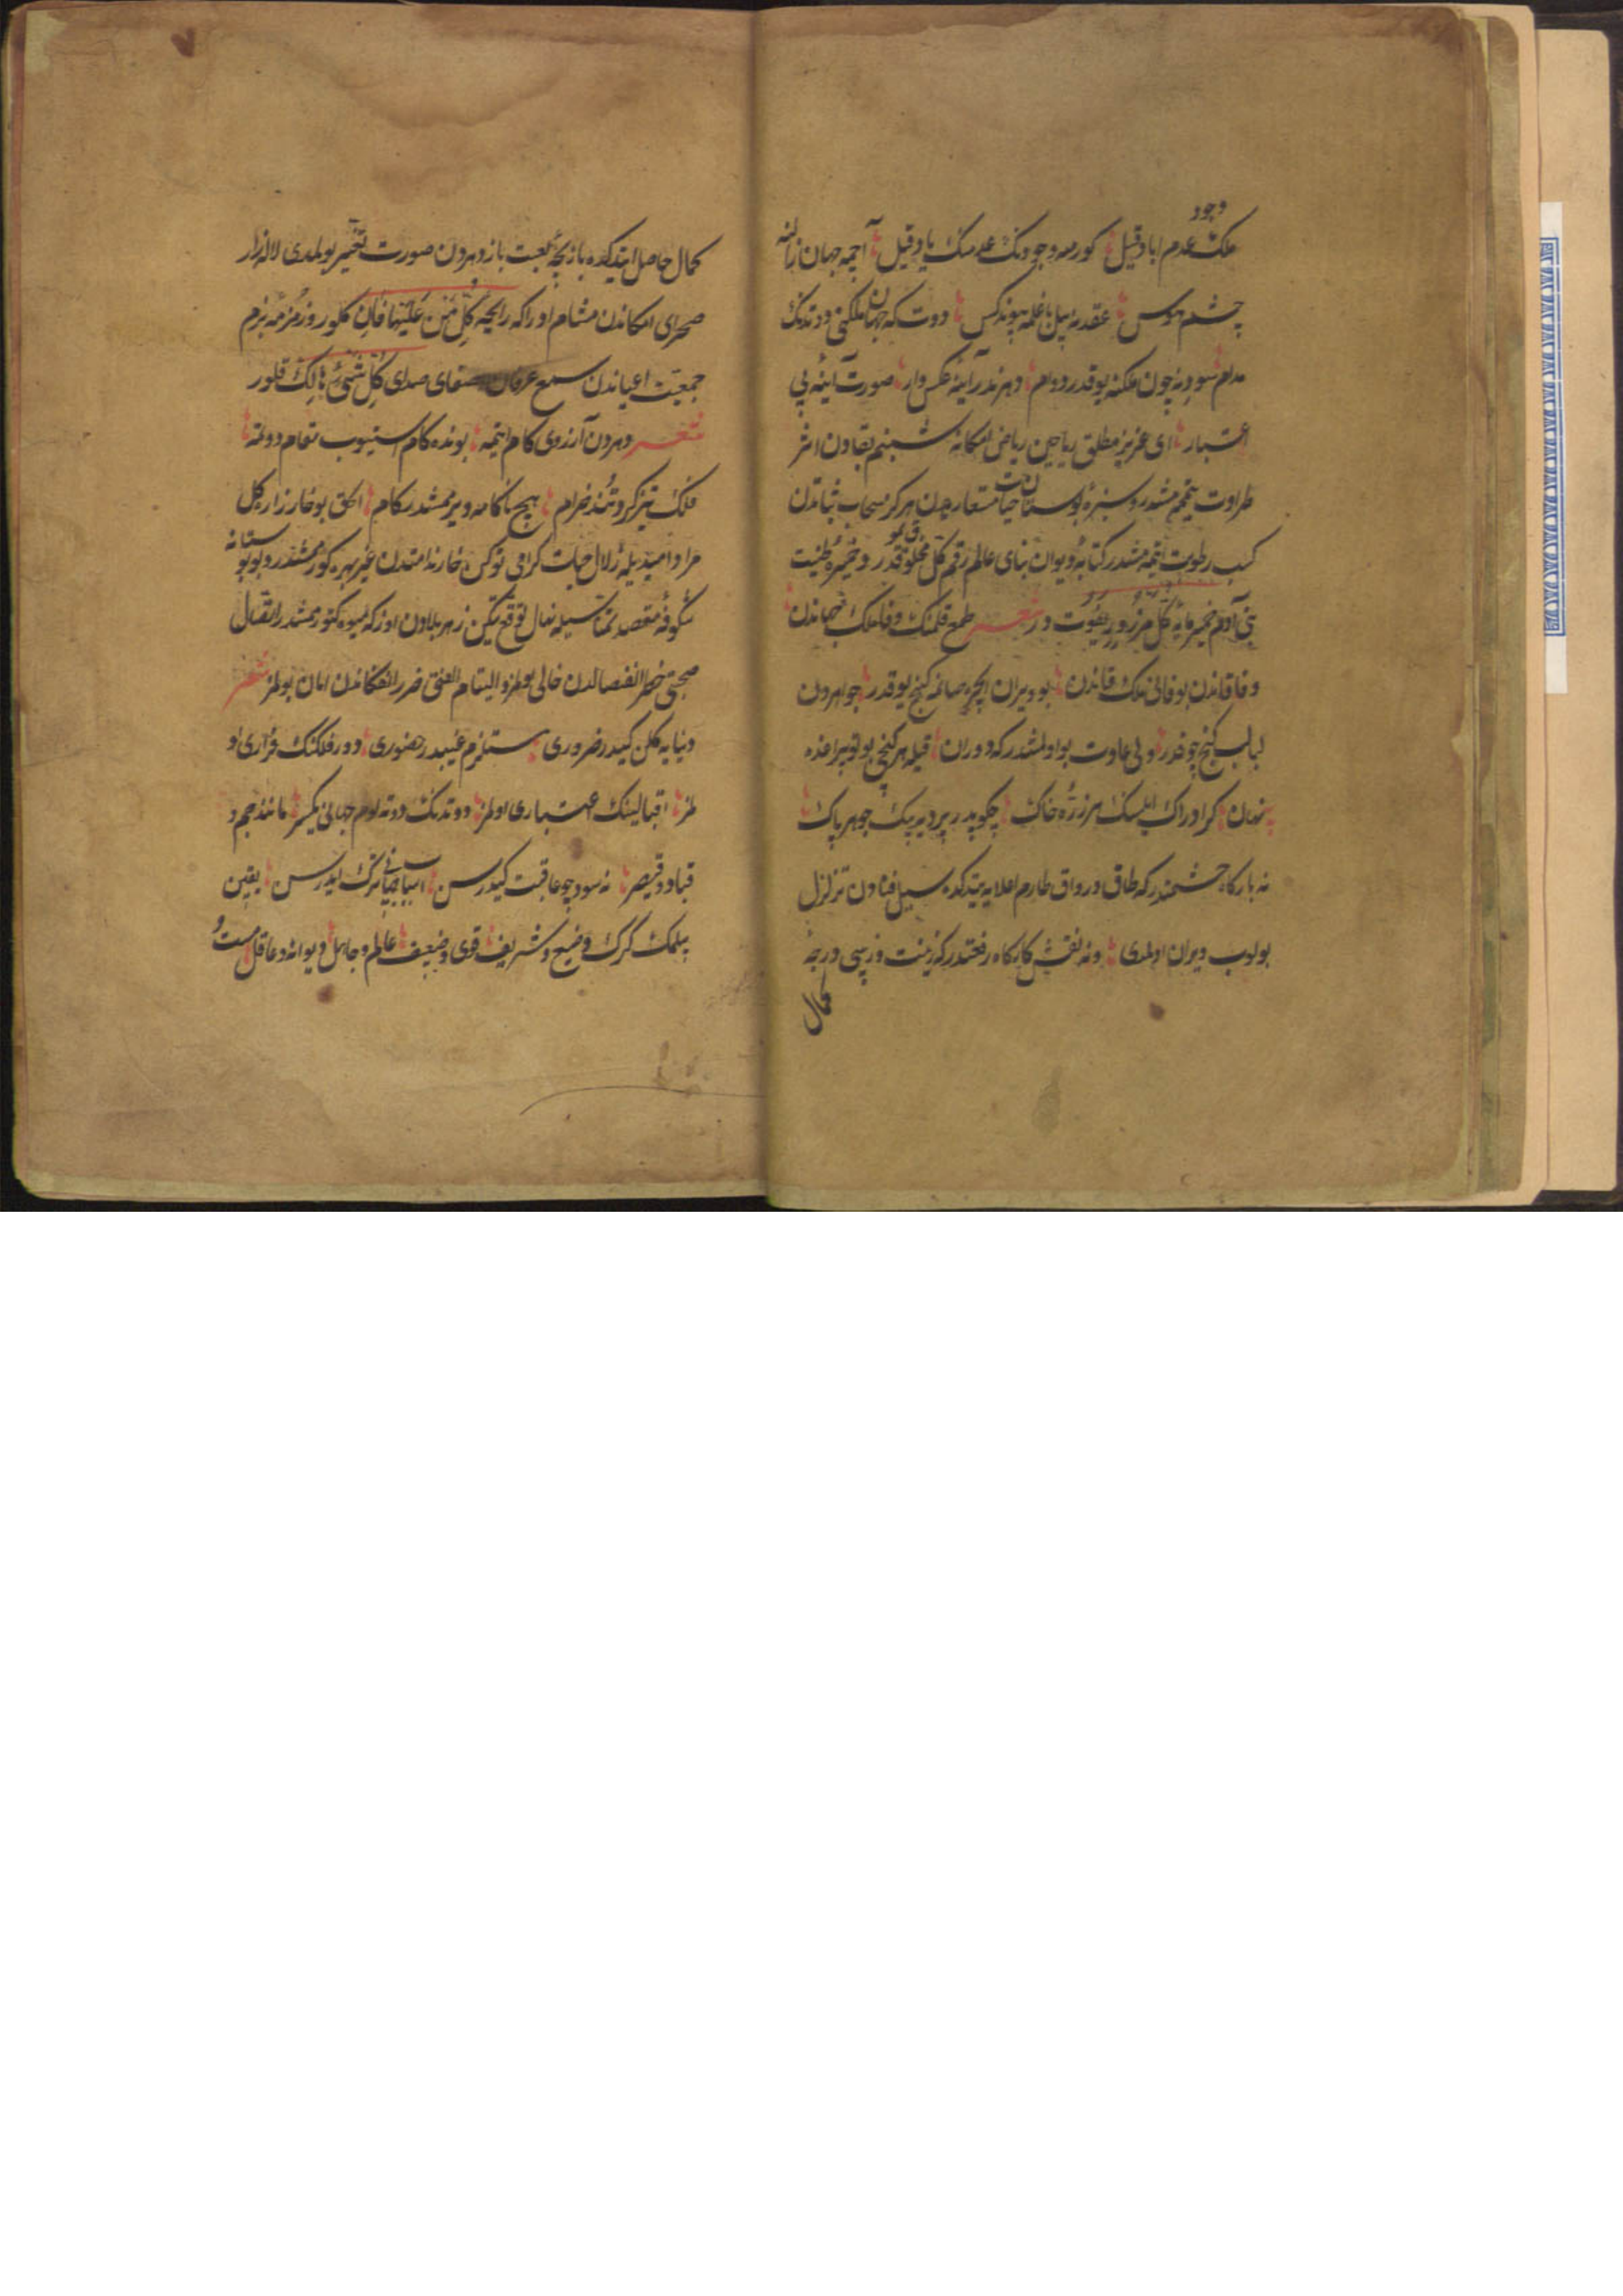 وجود
ملک عدم اباد قیل کورمه وجودنک عدمنک یاد قیل آچمه جهان زالنه
چشم هوس عقدنه ایل باغلمه پیوند کس دوت که جهان ملکنی دوتدنک
مدام سود نه چون ملکنه یوقدر دوام دهر ندر آینهٔ عکس وار صورت آینه بی
اعتبار ای عزیز مطلق ریاحین ریاض امکانه شبنم بقادن اثر
طراوت یتممشدر و سبزهٔ بوستان حیات مستعاره هرکز سحاب ثباتدن
کسب رطوبت ایتمه مشدر کتابهٔ دیوان بنای عالم رقم کل مخلوقدر و خمیرهٔ طینت
بنی آدم خمیرمایهٔ کل مرزوق یموت در شعر طمع قلمنک وفا ملک جهاندن
وفا قاندن بو فانی ملک قاندن بو ویران ایچره صانمه کنج یوقدر جواهردن
لبالب کنج چوقدر ولی عادت بو اولمشدر که دوران قیله هر کنجی بو توپراغده
پنهان کر ادراک ایلسنک هر ذرّهٔ خاک چکوبدر پرده بیک جوهر پاک
نه بارکاه حشمتدر که طاق و رواق طارم اعلایه یتدکده سیل فنادن تزلزل
بولوب ویران اولمدی و نه نقش کارکاه رفعتدر که زینت و زیبی درجهٔ
کمال
کمال حاصل ایتدکده بازیچهٔ لعبت باز دهردن صورت تغییر بولمدی لاله زار
صحرای امکاندن مشام ادراکه رایحهٔ کُلُّ مَنْ عَلَیْهَا فَانٍ کلور و زمزمهٔ بزم
جمعیت اعیاندن سمع عرفانه صدای کُلُّ شَیْءٍ هَالِکٌ قلور
شعر دهردن آرزوی کام ایتمه بونده کام استیوب مقام دوتمه
فلک تیز کرد و تُند خرام هیچ ناکامه ویرممشدر کام الحق بو خارزاره کل
مراد امیدیله زلال حیات کرامی توکن خار ندامتدن غیر بهره کورممشدر و بو بوستانه
شکوفهٔ مقصد تمناسیله نهال توقع تیکن زهر بلادن اوزکه میوه کتورممشدر اتصال
صحبتی خطر انفصالدن خالی بولمز و التیام الفتی ضرر انفکاکدن امان بولمز شعر
دنیایه کلن کیدر ضروری مستلزم غیبدر حضوری دور فلکنک قراری او
لمز اقبالینک اعتباری اولمز دوتدنک دوته لوم جهانی یکسر مانند جم و
قباد و قیصر نه سود چو عاقبت کیدرسن اسباب جهانی ترک ایدرسن یقین
بیلمک کرک وضیع و شریف قوی و ضعیف عالم و جاهل دیوانه و عاقل مست و